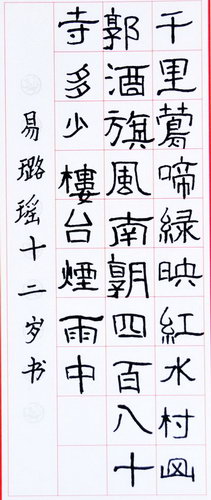 千里鶯啼緑映紅水村山
郭酒旗風南朝四百八十
寺多少樓台煙雨中
易璐瑶十二岁书